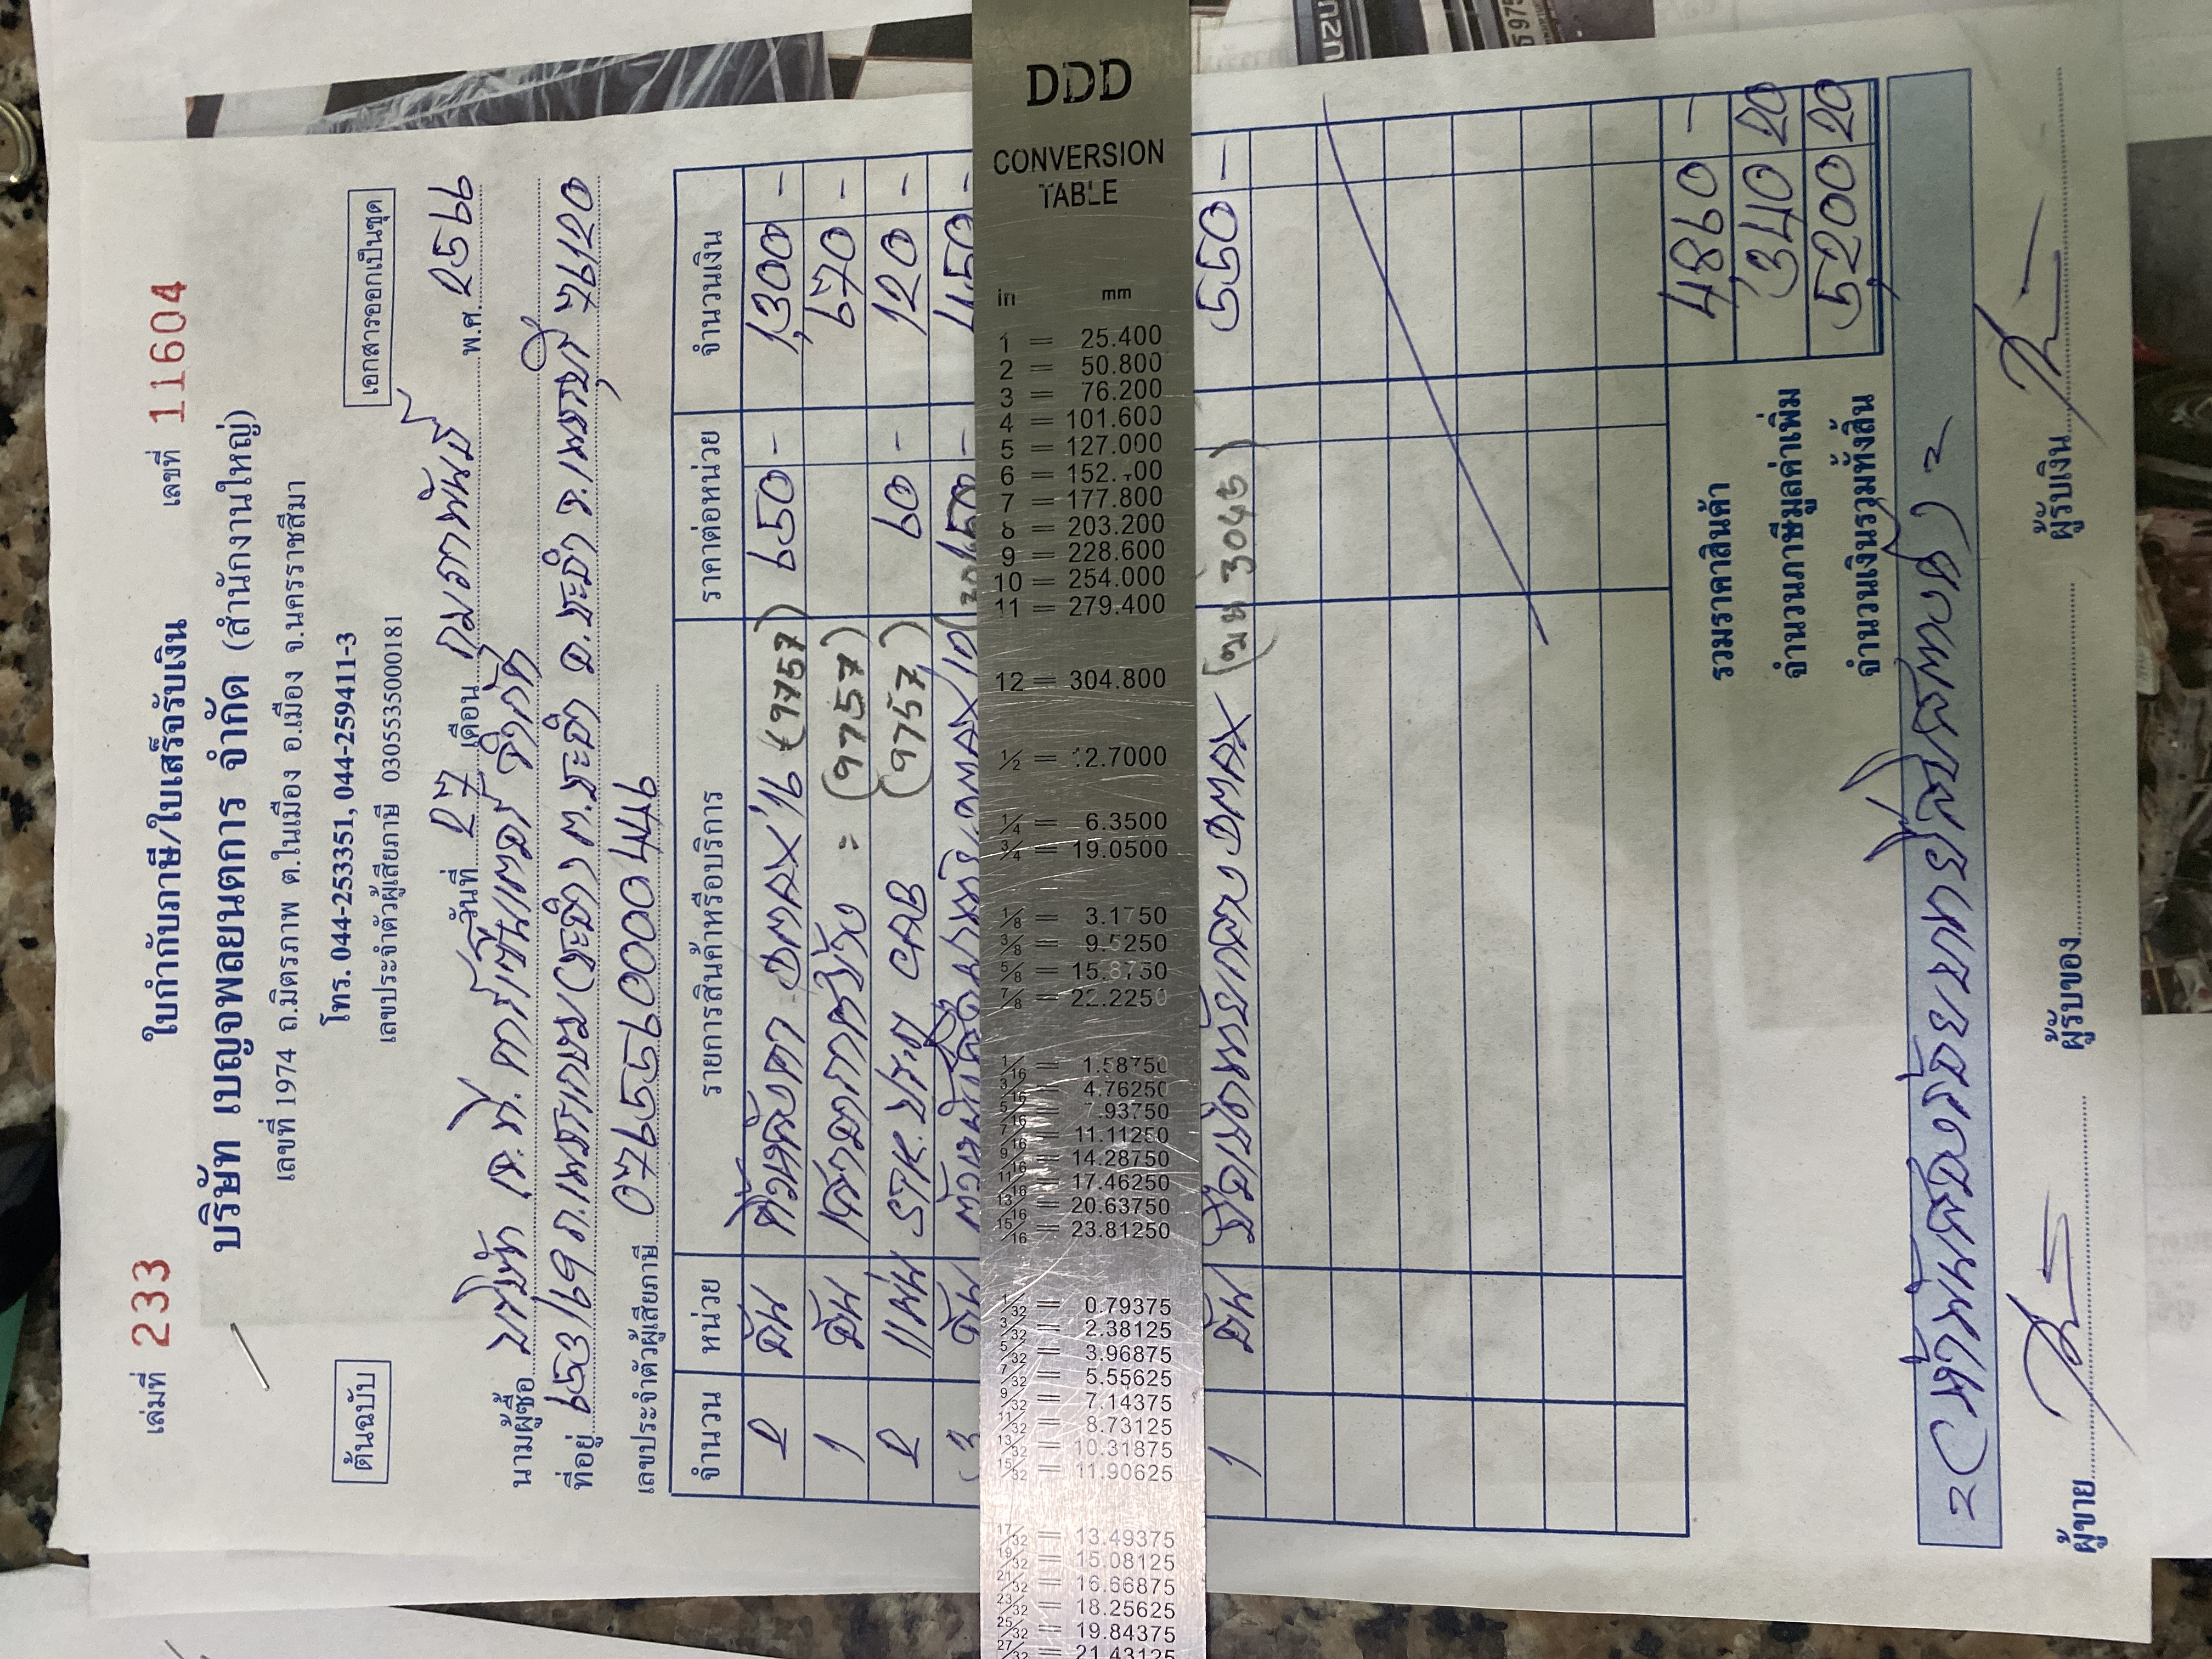 เล่มที่ 233 ใบกำกับภาษี/ใบเสร็จรับเงิน เลขที่ 11604
บริษัท เบญจพลยนตการ จำกัด (สำนักงานใหญ่)
เลขที่ 1974 ถ.มิตรภาพ ต.ในเมือง อ.เมือง จ.นครราชสีมา
ต้นฉบับ โทร. 044-253351, 044-259411-3 เอกสารออกเป็นชุด
เลขประจำตัวผู้เสียภาษี 0305535000181
วันที่ 27 เดือน กุมภาพันธ์ พ.ศ. 2566
นามผู้ซื้อ บริษัท จำกัด
ที่อยู่ อ.ชะอำ จ.เพชรบุรี 76120
เลขประจำตัวผู้เสียภาษี
จำนวน หน่วย รายการสินค้าหรือบริการ ราคาต่อหน่วย จำนวนเงิน
2 อัน DMAX'16 (9757) 650 - 1,300 -
1 อัน (9757) 670 -
2 แผ่น STK. CAB (9757) 60 - 120 -
3 อัน
1 ชุด DMAX (ฒฆ 3045) 550 -
รวมราคาสินค้า 4860 -
จำนวนภาษีมูลค่าเพิ่ม 340 20
จำนวนเงินรวมทั้งสิ้น 5,200 20
= (ห้าพันสองร้อยบาทยี่สิบสตางค์) =
ผู้ขาย ผู้รับของ ผู้รับเงิน
DDD
CONVERSION
TABLE
in mm
1 = 25.400
2 = 50.800
3 = 76.200
4 = 101.600
5 = 127.000
6 = 152.400
7 = 177.800
8 = 203.200
9 = 228.600
10 = 254.000
11 = 279.400
12 = 304.800
1/2 = 12.7000
1/4 = 6.3500
3/4 = 19.0500
1/8 = 3.1750
3/8 = 9.5250
5/8 = 15.8750
7/8 = 22.2250
1/16 = 1.58750
3/16 = 4.76250
5/16 = 7.93750
7/16 = 11.11250
9/16 = 14.28750
11/16 = 17.46250
13/16 = 20.63750
15/16 = 23.81250
1/32 = 0.79375
3/32 = 2.38125
5/32 = 3.96875
7/32 = 5.55625
9/32 = 7.14375
11/32 = 8.73125
13/32 = 10.31875
15/32 = 11.90625
17/32 = 13.49375
19/32 = 15.08125
21/32 = 16.66875
23/32 = 18.25625
25/32 = 19.84375
27/32 = 21.43125